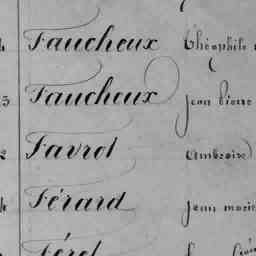 Faucheux Théophile
3 Faucheux Jean Pierre
2 Favrol Ambroise
Férard Jean marie
Férel